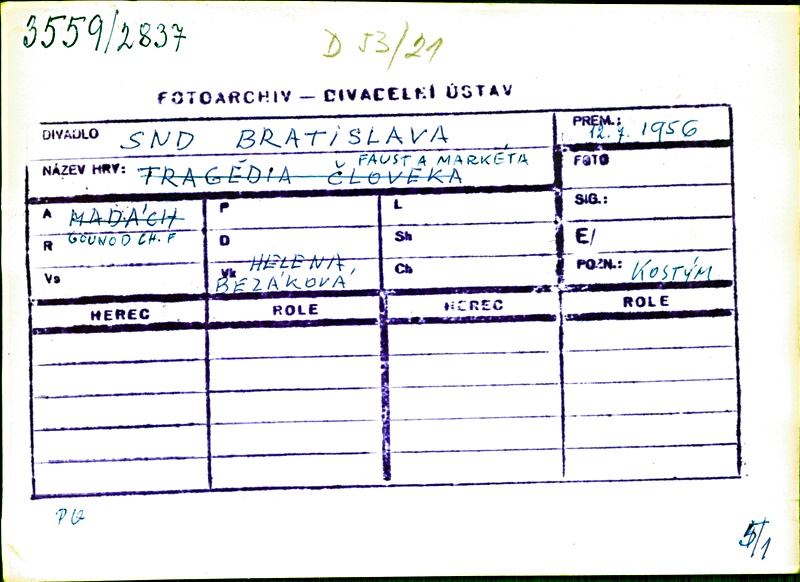 3559/2837
D 53/21
FOTOARCHIV – DIVADELNÍ ÚSTAV
DIVADLO SND BRATISLAVA
PREM.: 12.7. 1956
NÁZEV HRY: TRAGÉDIA ČLOVĚKA FAUST A MARKÉTA
FOTO
A MADÁCH
P
L
SIG.:
R GOUNOD CH. F
D
Sh
E/
Vs
Vk HELENA, BEZÁKOVÁ
Ch
POZN.: KOSTÝM
HEREC ROLE HEREC ROLE
5/1